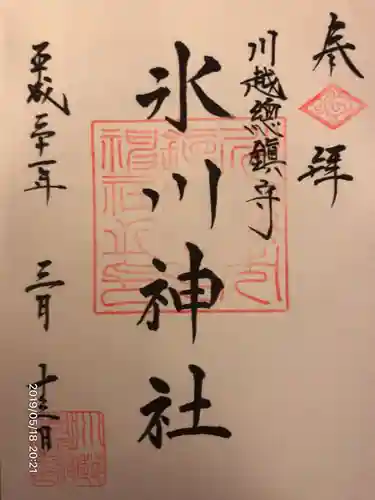 奉拝
川越總鎮守
氷川神社
平成三十一年 三月 十三日
2019/05/18 20:21